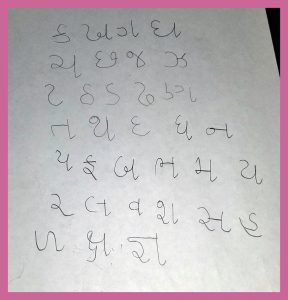 ક ખ ગ ઘ
ચ છ જ ઝ
ટ ઠ ડ ઢ ણ
ત થ દ ધ ન
પ ફ બ ભ મ ય
ર લ વ શ સ હ
ળ ક્ષ જ્ઞ